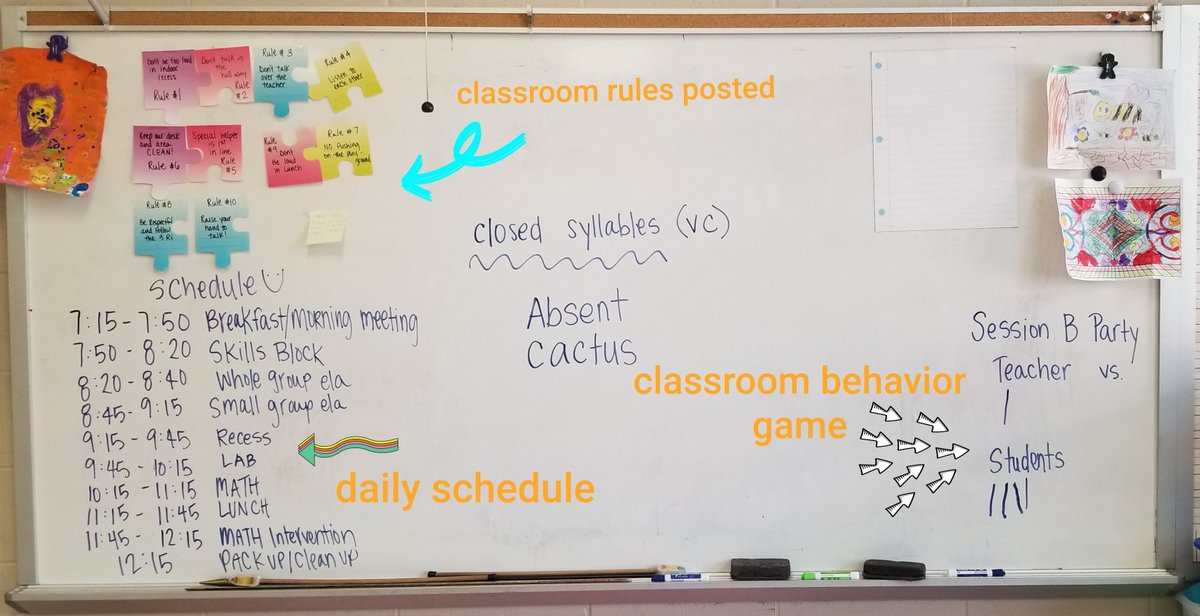 Don't be too loud
in indoor
recess
Rule #1
Don't talk in
the
hall way
Rule
#2
Rule #3
Don't talk
over the
teacher
Rule #4
Listen to
each other
classroom rules posted
Keep our desk
and area
CLEAN!
Rule #6
Special helper
is 1st
in line
Rule
#5
Rule
#9
Don't
Be loud
in Lunch
Rule #7
NO Pushing
on the Play
ground
Rule #8
Be Respectful
and Follow
the 3 R's
Rule #10
Raise your
hand to
talk!
closed syllables (vc)
Absent
cactus
Schedule
7:15 - 7:50 Breakfast/Morning meeting
7:50 - 8:20 Skills Block
8:20 - 8:40 Whole group ela
8:45 - 9:15 Small group ela
9:15 - 9:45 Recess
9:45 - 10:15 LAB
10:15 - 11:15 MATH
11:15 - 11:45 LUNCH
11:45 - 12:15 MATH Intervention
12:15 PACK UP/Clean UP
daily schedule
classroom behavior
game
Session B Party
Teacher vs.
Students